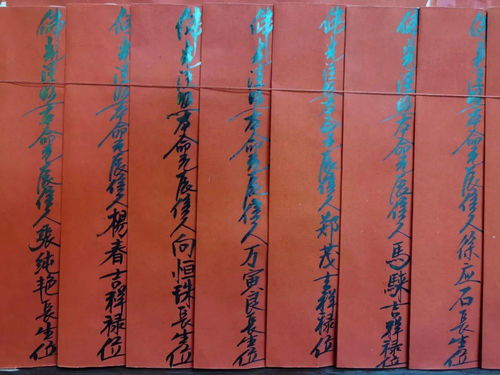 光注照本命元辰佳人徐应石長生位
光注照本命元辰佳人馬騋吉祥禄位
光注照本命元辰佳人郑茂吉祥禄位
光注照本命元辰佳人万寅良長生位
光注照本命元辰佳人向恒珠長生位
光注照本命元辰佳人楊春吉祥禄位
光注照本命元辰佳人張纯艳長生位